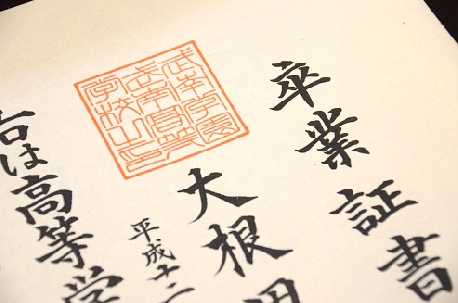 卒業証書
大根
平成十二
右は高等学